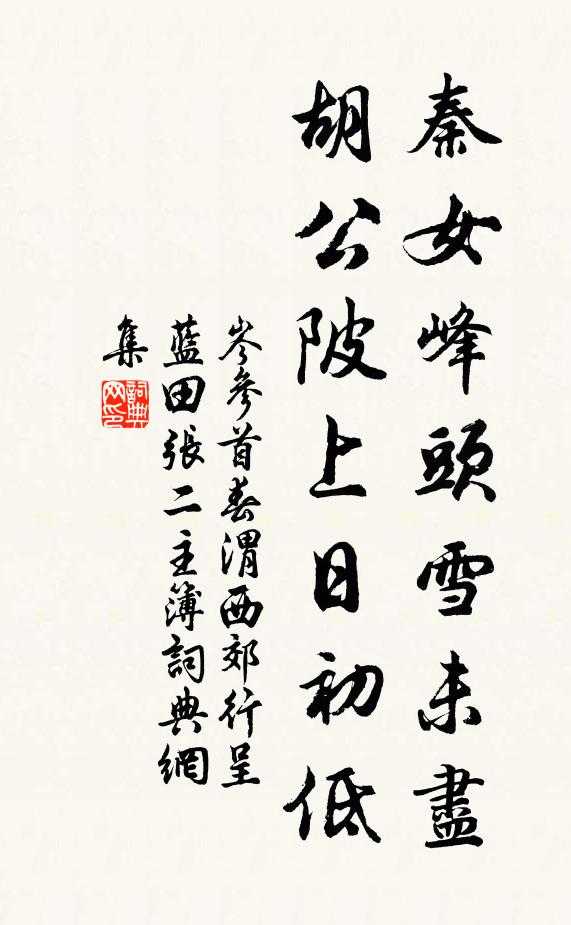 秦女峰頭雪未盡
胡公陂上日初低
岑參首春渭西郊行呈
藍田張二主簿詞典網
集
詞典
网印